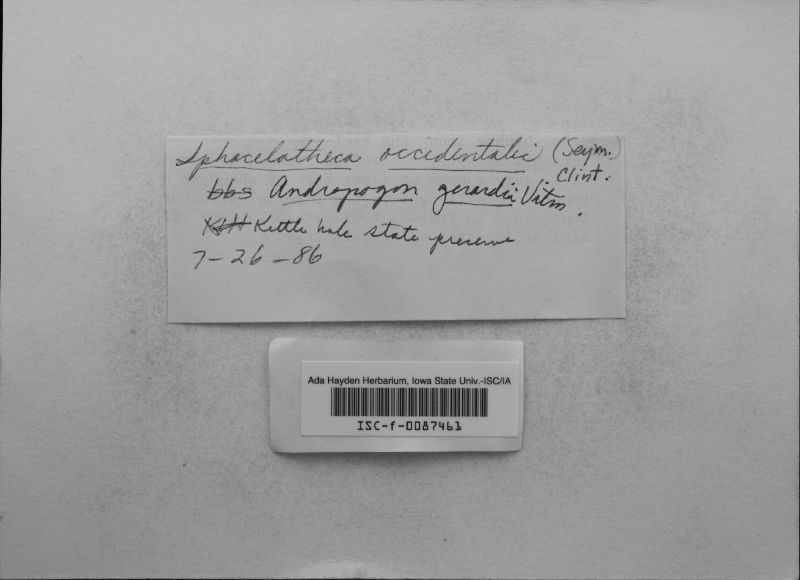 Sphacelotheca occidentalis (Seym.)
Clint.
bbs Andropogon gerardii Vitm.
Kettle hole state preserve
7-26-86
Ada Hayden Herbarium, Iowa State Univ.-ISC/IA
ISC-f-0087461